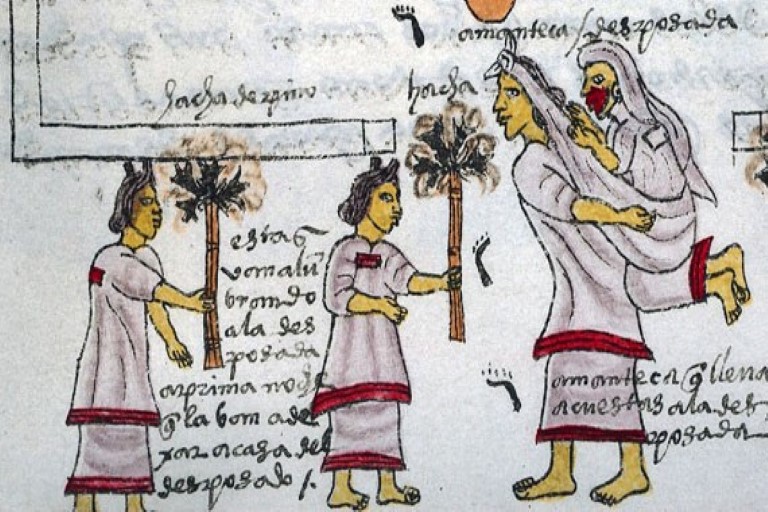 amanteca / desposada
hacha de pino
hacha
estas
van alum
brando
ala des
posada
a prima noche
q la van a de
xar a casa del
desposado /.
amanteca q lleva
acuestas ala des
posada